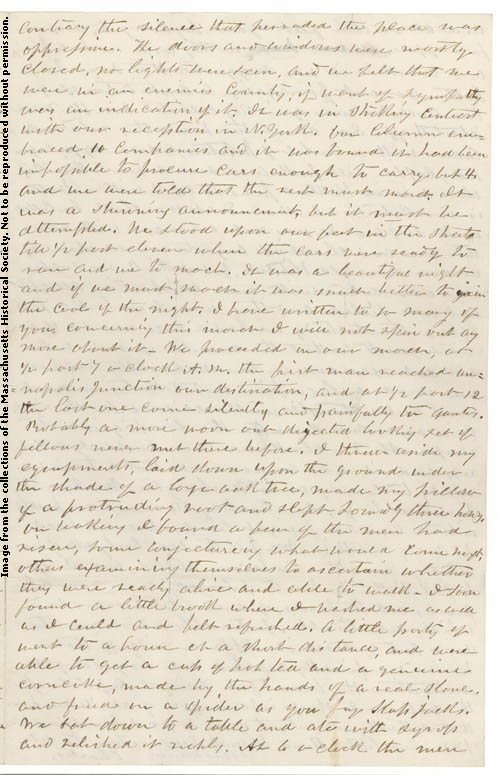 Image from the collections of the Massachusetts Historical Society. Not to be reproduced without permission.
contrary the silence that pervaded the place was
oppressive. The doors and windows were mostly
closed, no lights were seen, and we felt that we
were in an enemies County, if want of sympathy
was an indication of it. It was in striking contrast
with our reception in N. York. Our Column em-
braced 10 Companies and it was found it had been
impossible to procure cars enough to carry but 4.
and we were told that the rest must march. It
was a stunning announcement, but it must be
attempted. We stood upon our feet in the Streets
till 1/2 past eleven when the cars were ready to
run and we to march. It was a beautiful night
and if we must march it was much better to gain
the cool of the night. I have written to so many of
you concerning this march I will not spin out any
more about it - We proceeded in our march, at
1/2 past 7 o clock A.M. the first man reached An-
napolis Junction our destination, and at 1/2 past 12
the last one came silently and painfully to quarters.
Probably a more worn out dejected looking set of
fellows never met there before. I threw aside my
equipments, laid down upon the ground under
the shade of a large oak tree, made my pillow
of a protruding root and slept soundly three hours.
on waking I found a few of the men had
risen, some conjectureing what would come next,
others examining themselves to ascertain whether
they were really alive and able to walk - I soon
found a little brook where I washed me as well
as I could and felt refreshed. A little party of
went to a house at a short distance, and were
able to get a cup of hot tea and a genuine
corncake, made by the hands of a real Slave.
and fried on a spider as you fry Slap Jacks.
We sat down to a table and ate with syrup
and relished it richly. At 6 o clock the men